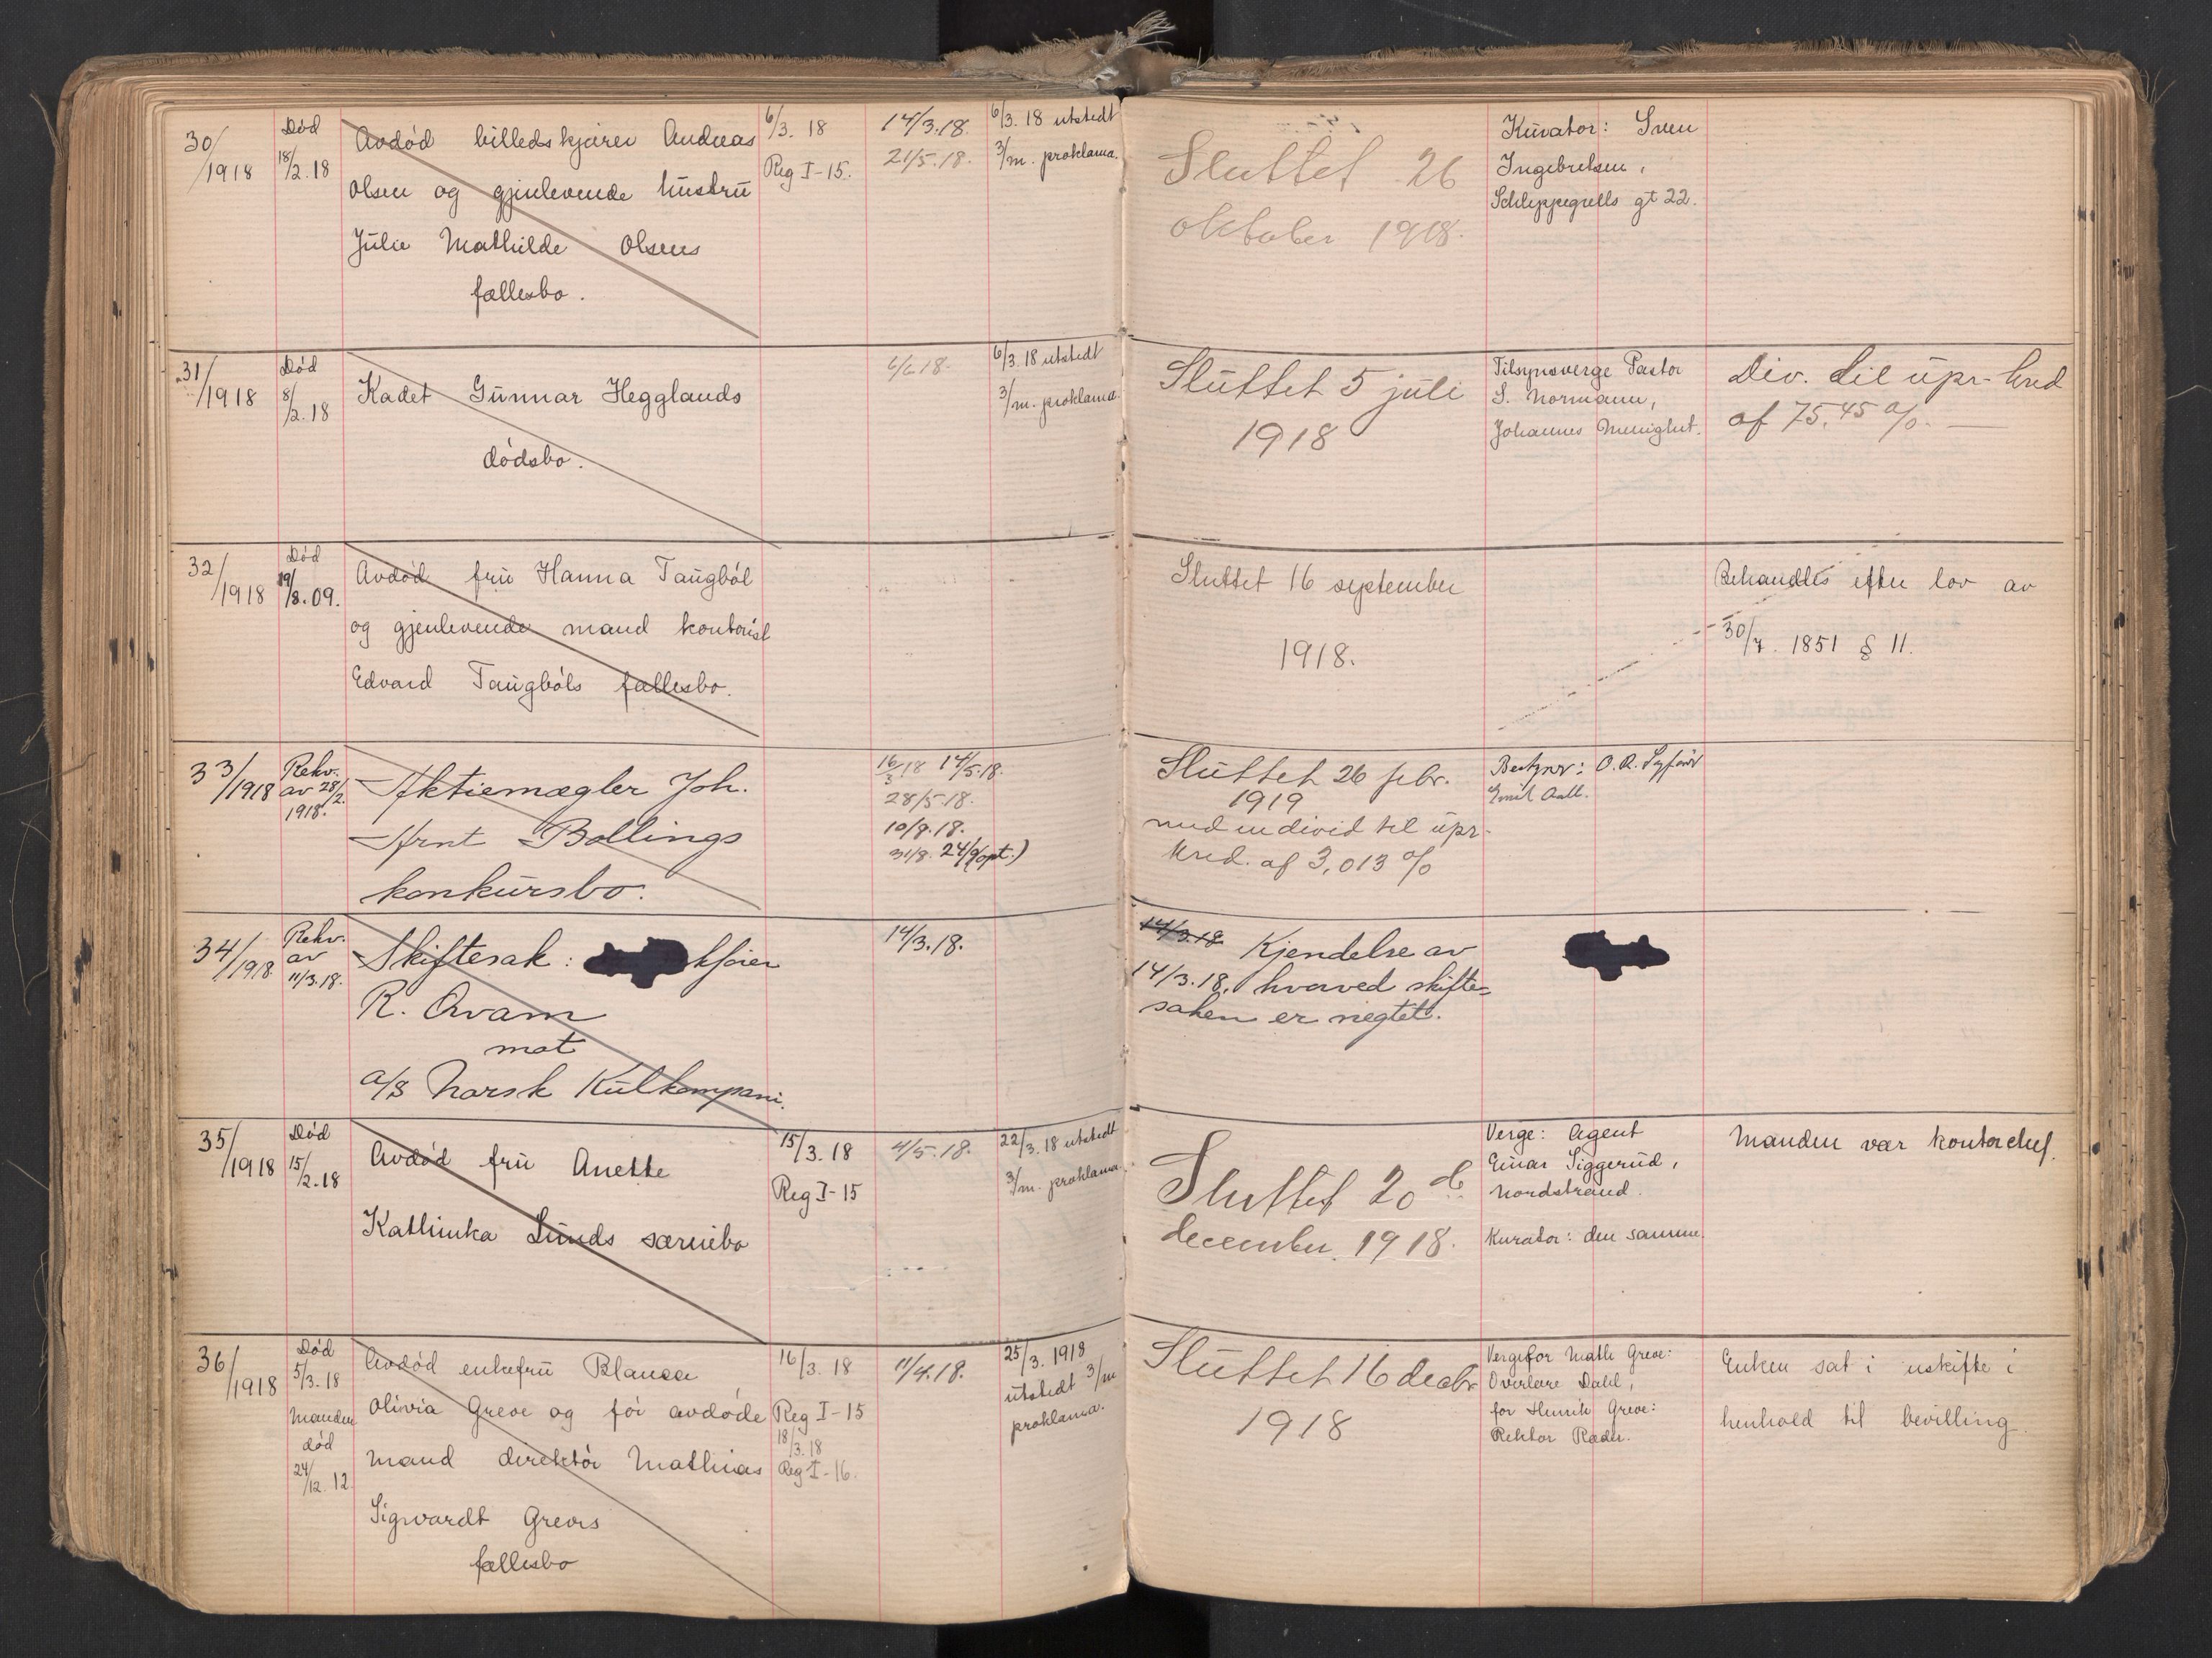 30/1918
Død
18/2.18
Avdød billedskjærer Andreas
Olsen og gjenlevende hustru
Julie Mathilde Olsens
fællesbo.
6/3. 18
Reg I-15.
14/3.18.
21/5.18.
6/3.18 utstedt
3/m. proklama.
Sluttet 26
oktober 1918.
Kurator: Sven
Ingebretsen,
Schleppegrells gt 22.
31/1918
Død
8/2.18
Kadet Gunnar Hegglands
dødsbo.
6/3.18 utstedt
3/m. proklama.
Sluttet 5 juli
1918
Tilsynsverge Pastor
S. Normann,
Johannes
Div. til upr. kred
af 75,45 %.
32/1918
Død
19/8.09.
Avdød fru Hanna Taugbøl
og gjenlevende mand kontorist
Edvard Taugbøls fællesbo.
Sluttet 16 september
1918.
Behandles efter lov av
30/7. 1851 § 11.
33/1918
Rekv.
av 28/2.
1918.
Aktiemægler Joh.
Arnt Bollings
konkursbo.
16/3 18 14/5.18.
28/5.18.
10/8.18.
31/8. 24/9(opt.)
Sluttet 26 febr.
1919
med en divid til upr.
kred. af 3,013 %
Bestyrer: O.R. Sagfører
Emil Aall.
34/1918
Rekv.
av
11/3.18.
Skiftesak: kfører
R. Qvam
mot
a/s Norsk Kulkompani.
14/3.18.
14/3.18. Kjendelse av
14/3.18, hvorved skifte=
saken er negtet.
35/1918
Død
15/2.18
Avdød fru Anette
Kathinka Lunds særeiebo
15/3.18
Reg I-15
4/5.18.
22/3.18 utstedt
3/m. proklama.
Sluttet 20de
december 1918.
Verge: Agent
Einar Siggerud,
Nordstrand.
Kurator: den samme.
Manden var kontorchef.
36/1918
Død
5/3.18
Manden
død
24/12.12.
Avdød enkefru Blanca
Olivia Greve og før avdøde
mand direktør Mathias
Sigwardt Greves
fællesbo
16/3.18
Reg I-15
18/3.18
Reg I-16.
11/4.18.
25/3. 1918
utstedt 3/m
proklama.
Sluttet 16 decbr
1918
Verge for Math Greve:
Overlærer Dahl,
for Henrik Greve:
Rektor Ræder.
Enken sat i uskifte i
henhold til bevilling